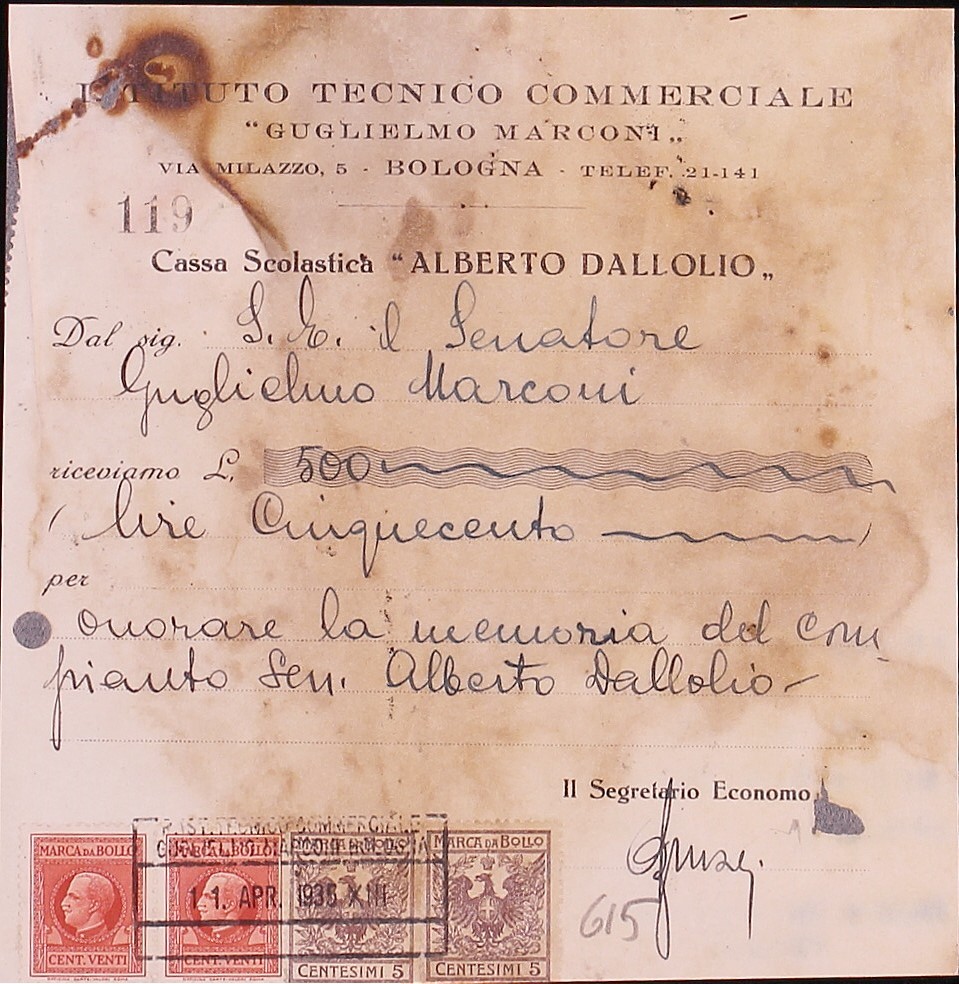 ISTITUTO TECNICO COMMERCIALE
"GUGLIELMO MARCONI„
VIA MILAZZO, 5 - BOLOGNA - TELEF. 21-141
119
Cassa Scolastica "ALBERTO DALLOLIO„
Dal sig. S. E. il Senatore
Guglielmo Marconi
riceviamo L. 500
( lire Cinquecento )
per
onorare la memoria del com
pianto Sen. Alberto Dallolio -
Il Segretario Economo
615
MARCA DA BOLLO MARCA DA BOLLO MARCA DA BOLLO MARCA DA BOLLO
11. APR. 1935 XIII
CENT. VENTI CENT. VENTI CENTESIMI 5 CENTESIMI 5